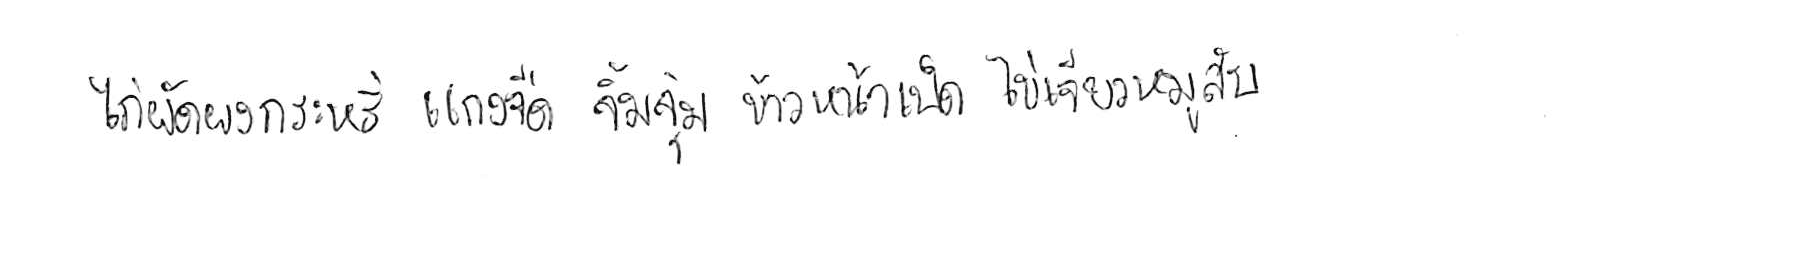 ไก่ผัดผงกระหรี่ แกงจืด จิ้มจุ่ม ข้าวหน้าเป็ด ไข่เจียวหมูสับ